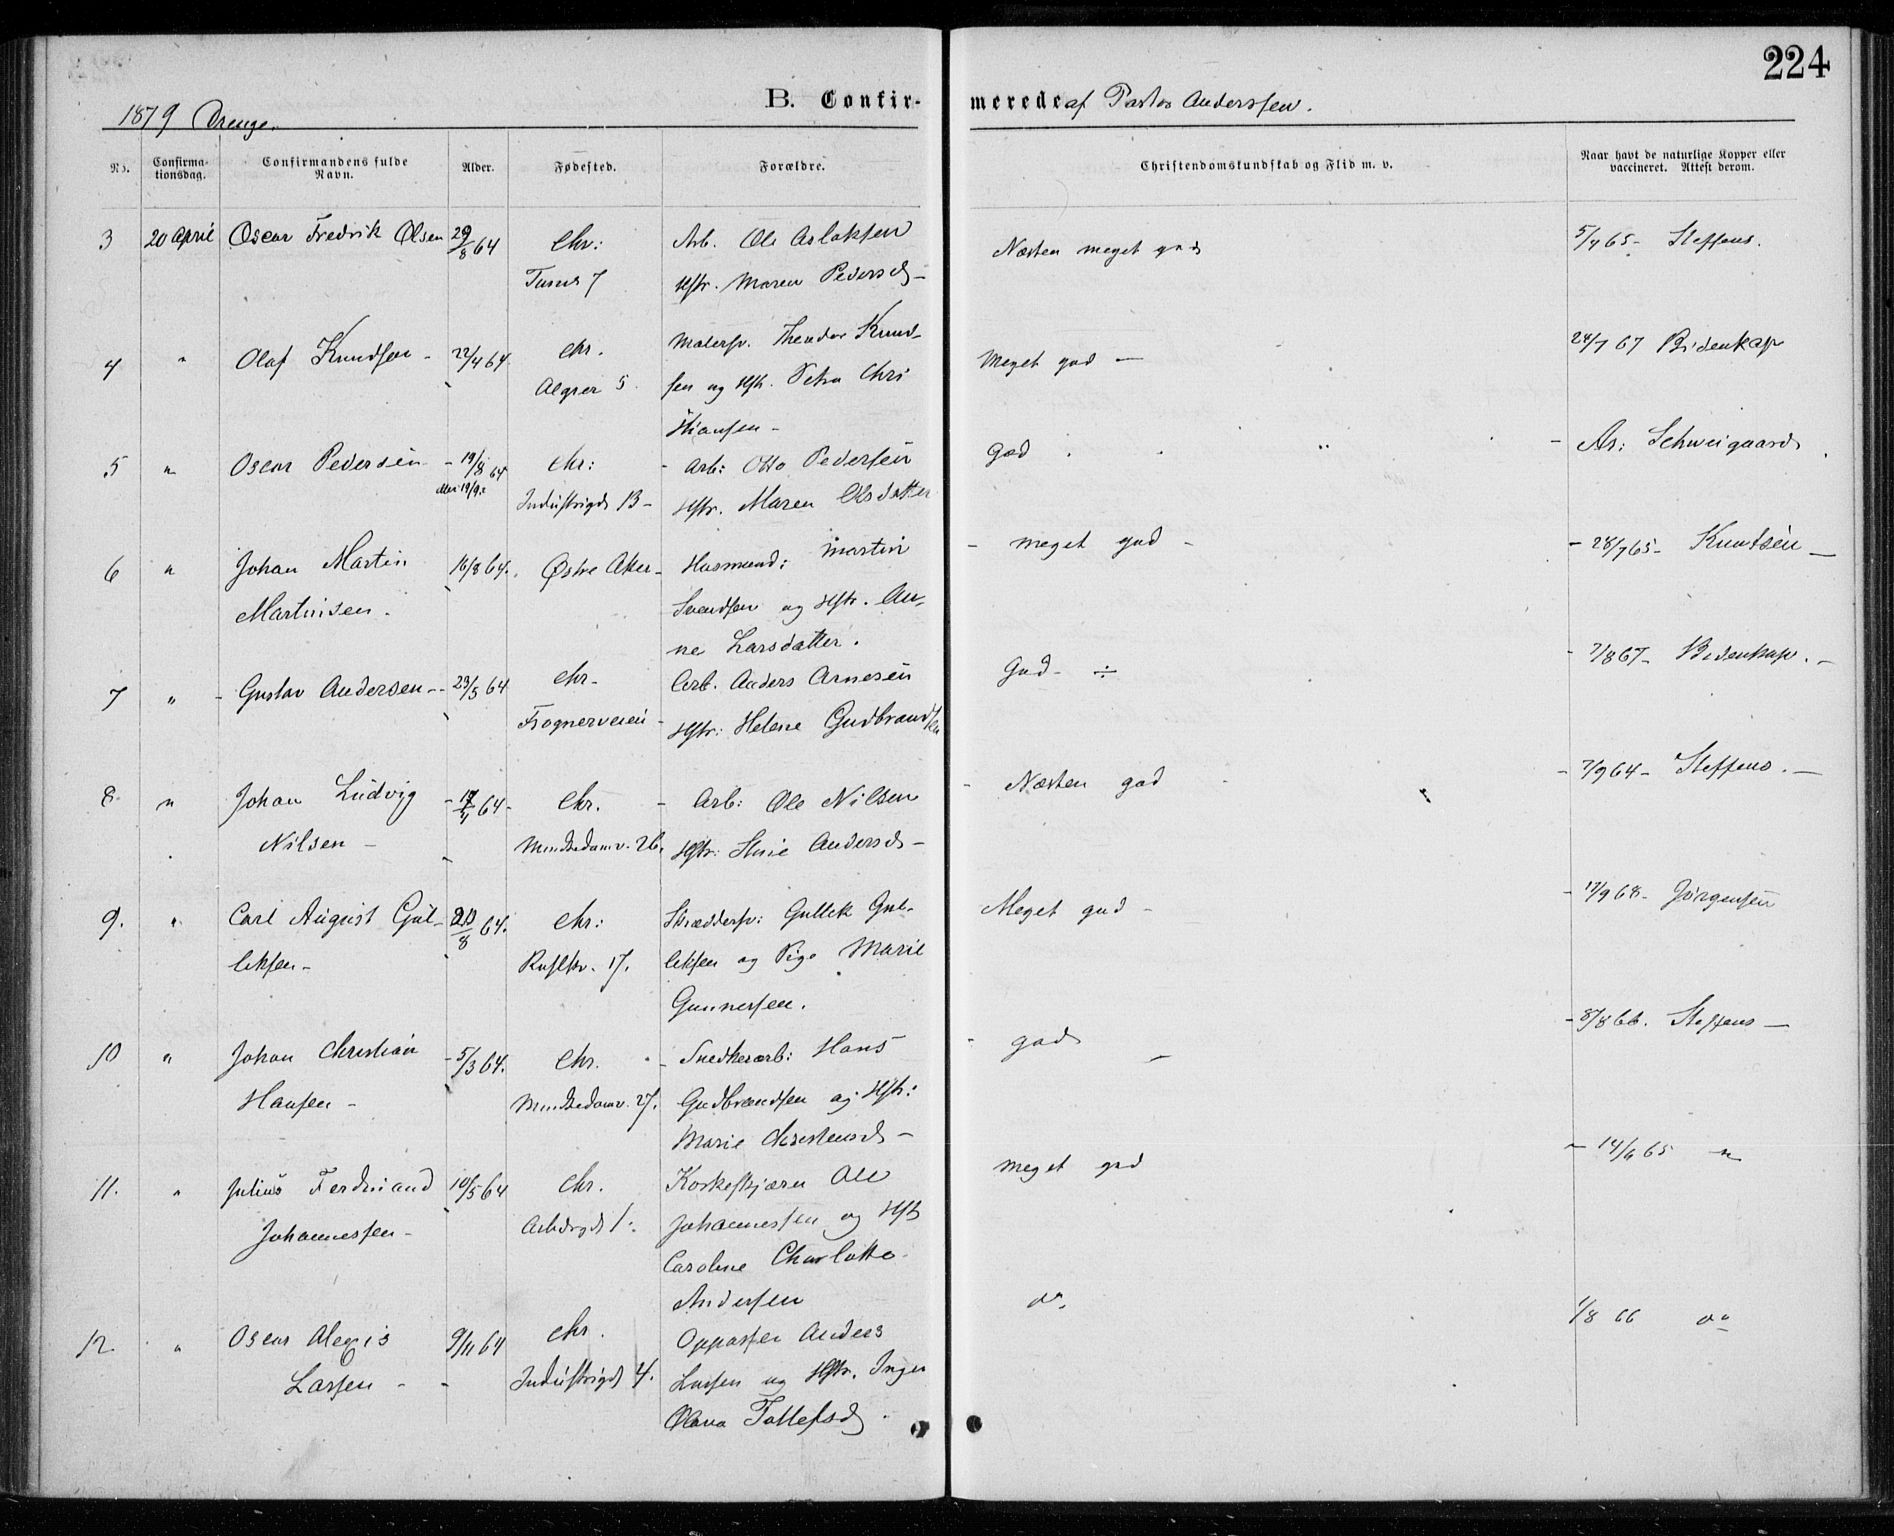 224
B. Confir- merede af Pastor Anderssen.
1879 Drenge.
No. Confirma-tionsdag. Confirmandens fulde Navn. Alder. Fødested. Forældre. Christendomskundskab og Flid m. v. Naar havt de naturlige Kopper eller vaccineret. Attest derom.
3 20 April Oscar Fredrik Olsen 29/8 64 Chr: Arb. Ole Aslaksen Næsten meget god 5/7 65 - Steffens.
7 Hstr. Maren Pedersd -
4 " Olaf Knudsen - 22/4 64. Chr. Malersv. Theodor Knud- Meget god - 24/7 67 Bidenkap
5. sen og Hstr. Petra Chri
stiansen -
5 " Oscar Pedersen - 19/8 64 Chr: - Arb: Otto Pedersen God - As: Schweigaard.
eller 19/9: Industrigd 13 - Hstr. Maren Olsdatter
6 " Johan Martin 16/8 64. Østre Aker - Husmand: Martin - meget god - - 28/7 65 - Knutsen -
Martinsen. Svendsen og Hstr. An-
ne Larsdatter.
7 " - Gustav Andersen - - 23/5 64 Chr - Arb. Anders Arnesen God - ÷ - 7/8 67 - Bidenkap. -
Frognerveien - Hstr: Helene Gudbrandsen
8 " Johan Ludvig 64 - Chr. - Arb: Ole Nilsen - Næsten god - - 7/9 64 - Steffens. -
Nilsen - Munkedamv. 26. Hstr: Andersd -
9. " Carl August Gul- 20/8 64. Chr: Skræddersv: Gullek Gul- Meget god - - 17/9 68 - Jörgensen
leksen - 17. leksen og Pige Marie
Gunnersen.
10 " Johan Christian - 5/3 64. Chr. - Snedkerarb: Hans - god - - 8/8 66. Steffens -
Hansen - Munkedamv. 27. Gudbrandsen og Hstr:
Marie Christensd -
11. " Julius Ferdinand 10/5 64 Chr. Korkeskjærer Ole meget god - 14/6 65 "
Johannessen - 1. Johannessen og Hstr
Caroline Charlotte
Andersen
12. " Oscar Alexis 9/11 64 Chr. Oppasser Anders do. 1/8 66 do
Larsen - - Industrigd 4. Larsen og Hstr. Inger
Olava Tollefsd.